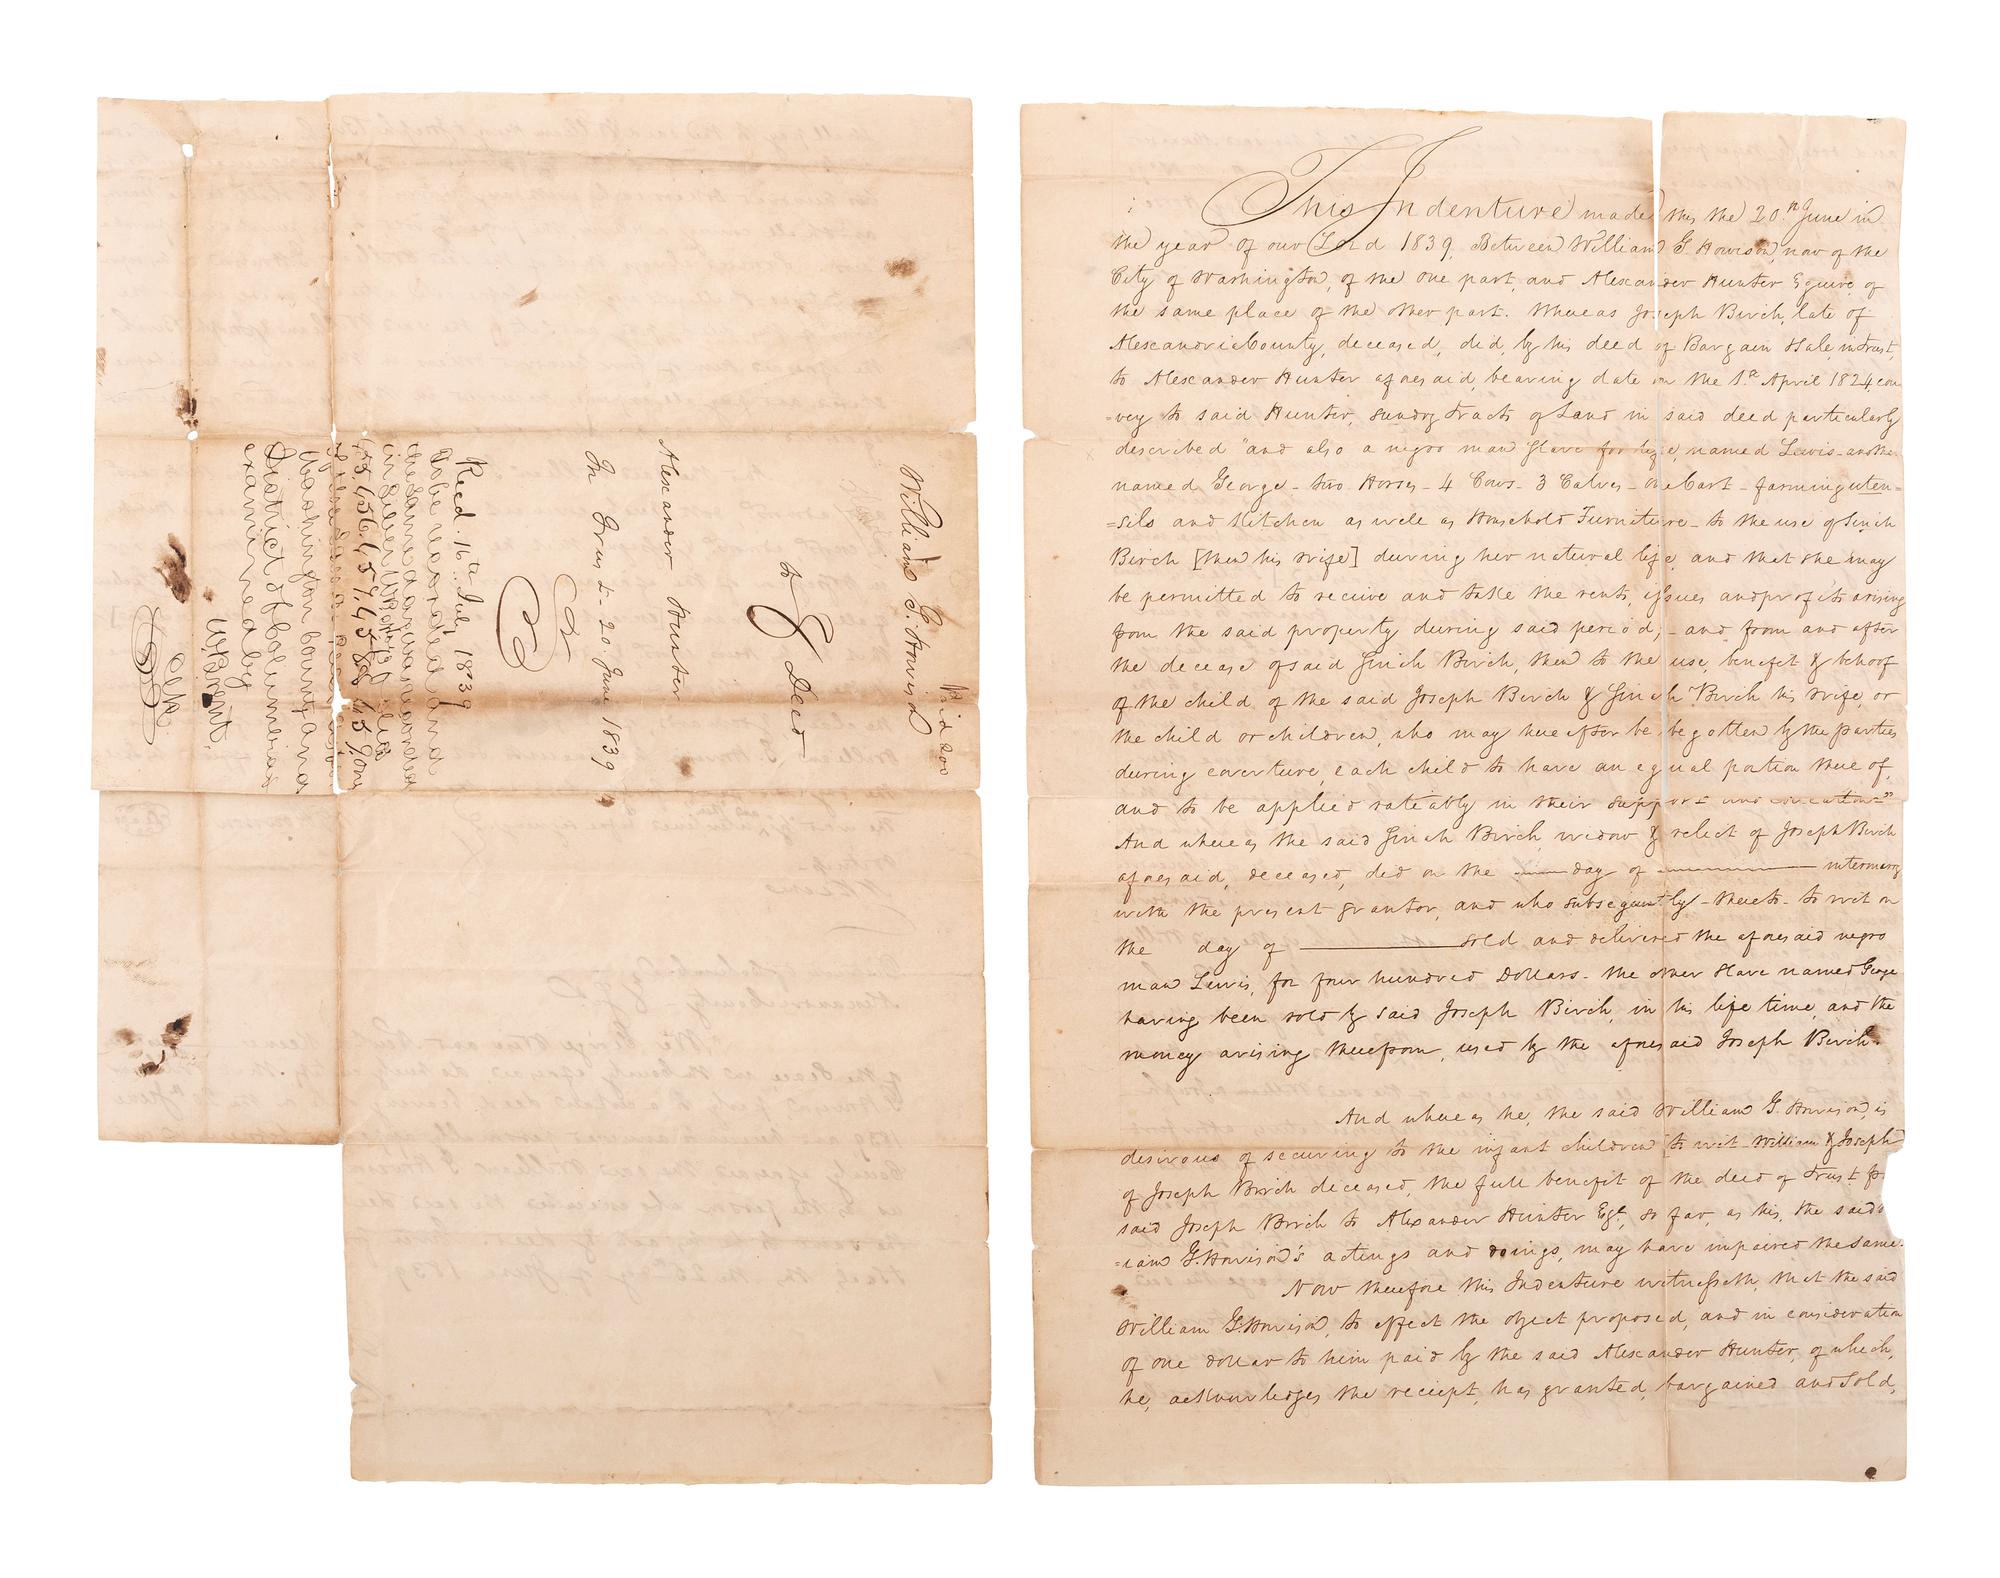 William G. Howison
to } Deed
Alexander Hunter
In Trust - 20. June 1839
Recd. 16th July 1839
to be recorded and
the same day recorded
in Liber W.B. No
one of the Land Records for
Washington County and
District of Columbia &
examined by
W Brent
Clk
This Indenture made this the 20.th June in
the year of our Lord 1839, Between William G. Howison, now of the
City of Washington, of the one part, and Alexander Hunter Esquire, of
the same place of the other part. Whereas Joseph Birch, late of
Alexandria County, deceased, did, by his deed of Bargain & Sale, in trust,
to Alexander Hunter aforesaid, bearing date on the 1.st April 1824, con
=vey to said Hunter, sundry tracts of Land in said deed particularly
described "and also a negro man slave for life, named Lewis - another
named George - two Horses - 4 Cows - 3 Calves - one Cart - farming uten=
=sils and Kitchen as well as Household Furniture - to the use of Sinch
Birch [then his wife] during her natural life, and that she may
be permitted to receive and take the rents, issues and profits arising
from the said property during said period; - and from and after
the decease of said Sinch Birch, then to the use, benefit & behoof
of the child of the said Joseph Birch & Sinch Birch his wife, or
the child or children, who may hereafter be begotten by the parties
during coverture, each child to have an equal portion thereof,
and to be applied rateably in their support and education="
And whereas the said Sinch Birch, widow & relict of Joseph Birch
aforesaid, deceased, did on the day of intermarry
with the present grantor, and who subsequently - thereto - to wit on
the day of sold and delivered the aforesaid negro
man Lewis, for four hundred Dollars - the other slave named George
having been sold by said Joseph Birch, in his life time, and the
money arising therefrom, used by the aforesaid Joseph Birch.
And whereas he, the said William G. Howison, is
desirous of securing to the infant children [to wit - William & Joseph
of Joseph Birch deceased, the full benefit of the deed of Trust
said Joseph Birch to Alexander Hunter Esqr, so far, as his, the said
=iam G. Howison's actings and doings, may have impaired the same.
Now therefore this Indenture witnesseth, that the said
William G. Howison, to effect the object proposed, and in consideration
of one dollar to him paid by the said Alexander Hunter, of which,
he, acknowledges the reciept, has granted, bargained and sold,